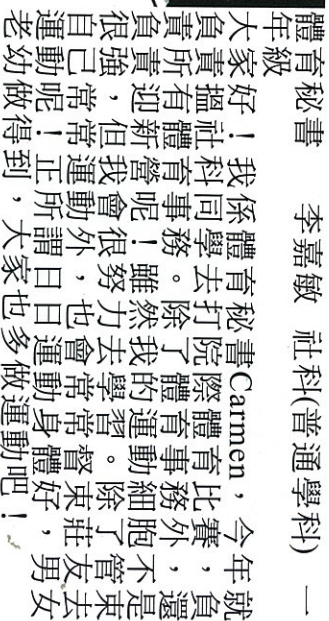 體育秘書 李嘉敏 社科(普通學科) 一
年級
大家好！我係體育秘書Carmen，今年就
負責搵社科同學去打院際體育比賽，負
責所有體育事務。除了體育事務外，還
負責迎新營呢！雖然我的運動細胞不是
很強，但我會很努力去學習。除了管束
自己常常運動外，也會常常督束莊友去
運動呢！正所謂日日運動身體好，男女
老幼做得到，大家也多做運動吧！